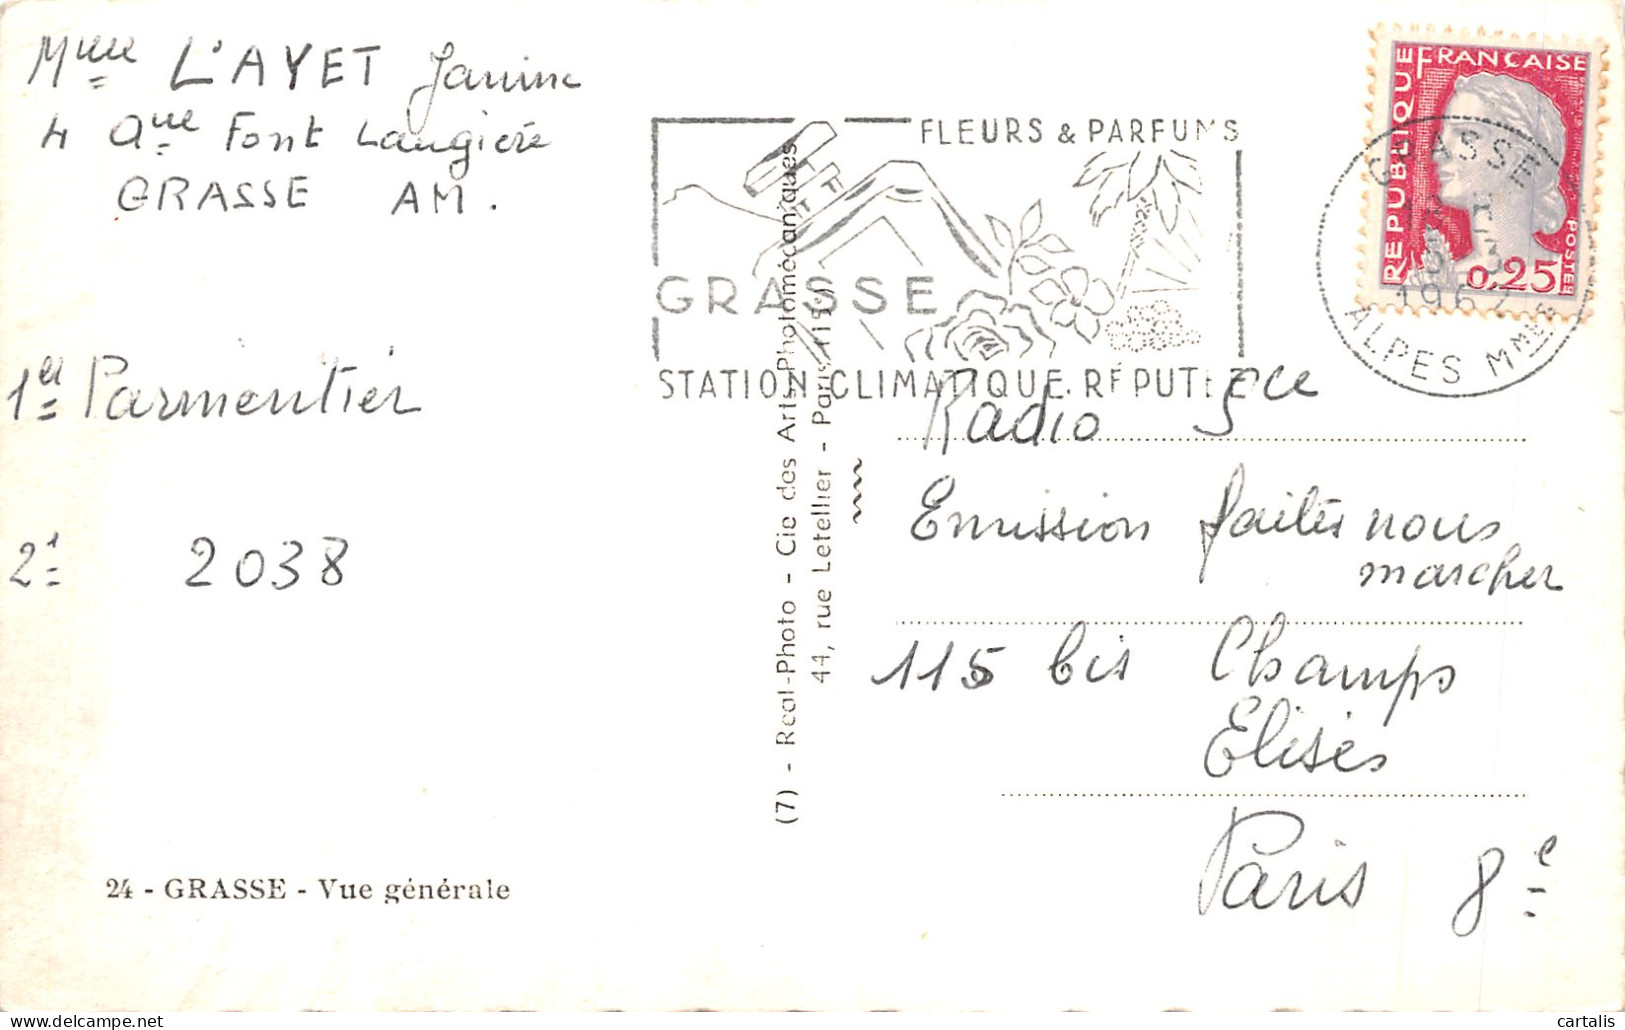 Mme L'AYET Janine
4 Que Font Laugière
GRASSE AM.
1er Parmentier
2è 2038
24 - GRASSE - Vue générale
(7) - Real-Photo - Cie des Arts Photomécaniques
44, rue Letellier - Paris
FLEURS & PARFUMS
GRASSE
STATION CLIMATIQUE RÉPUTÉE
RÉPUBLIQUE FRANÇAISE
0,25
POSTES
GRASSE
ALPES MMES
Radio 5ce
Emission faites nous
marcher
115 bis Champs
Elisés
Paris 8e
cartalis